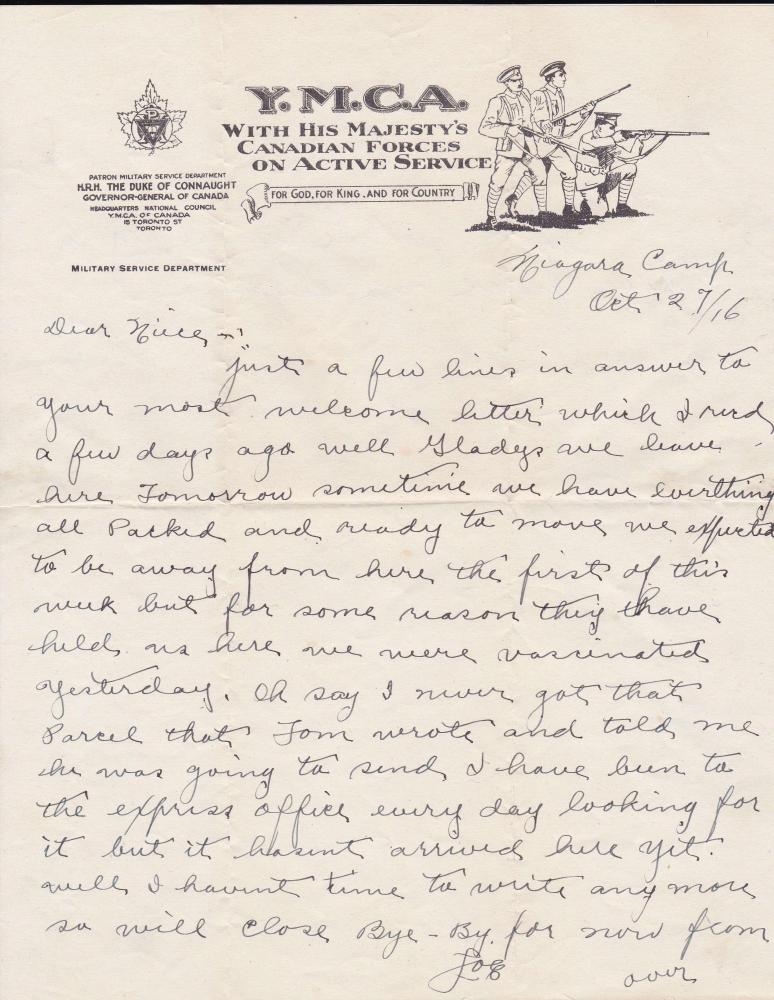 Y.M.C.A.
WITH HIS MAJESTY'S
CANADIAN FORCES
ON ACTIVE SERVICE
FOR GOD, FOR KING, AND FOR COUNTRY
PATRON MILITARY SERVICE DEPARTMENT
H.R.H. THE DUKE OF CONNAUGHT
GOVERNOR-GENERAL OF CANADA
HEADQUARTERS NATIONAL COUNCIL
Y.M.C.A. OF CANADA
15 TORONTO ST
TORONTO
MILITARY SERVICE DEPARTMENT
Niagara Camp
Oct 27/16
Dear Niece,
just a few lines in answer to
your most welcome letter which I recd
a few days ago well Gladys we leave
here Tomorrow sometime we have everthing
all Packed and ready to move we expected
to be away from here the first of this
week but for some reason they have
held us here we were vascinated
yesterday. Oh say I never got that
Parcel that Tom wrote and told me
he was going to send, I have been to
the express office every day looking for
it but it hasent arrived here yet.
well I havent time to write any more
so will close Bye-By. for now from
Joe
over